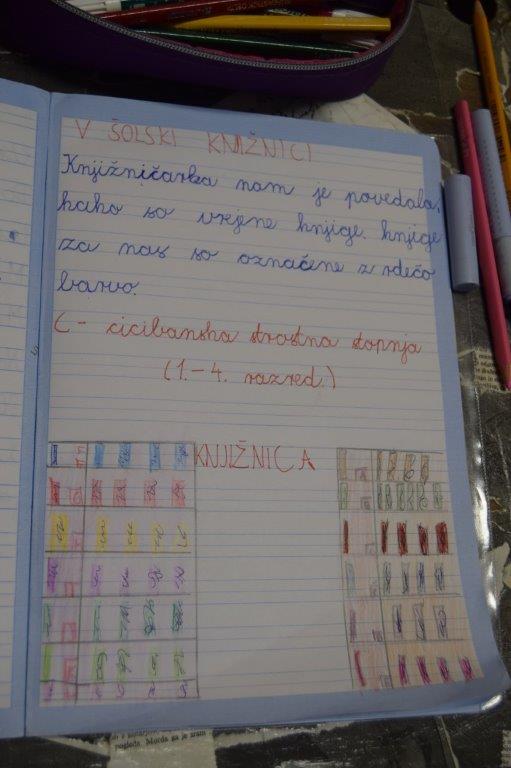 V ŠOLSKI KNJIŽNICI
Knjižničarka nam je povedala,
kako so urejene knjige. knjige
za nas so označene z rdečo
barvo.
C - cicibanska starostna stopnja
(1. - 4. razred.)
KNJIŽNICA